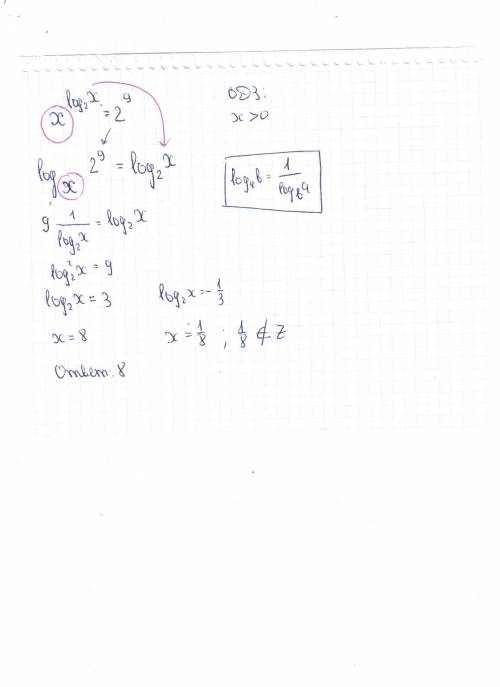 x^{log₂x} = 2⁹
ОДЗ:
x > 0
log_x 2⁹ = log₂x
log_a b = 1/log_b a
9 1/log₂x = log₂x
log₂²x = 9
log₂x = 3
log₂x = -1/3
x = 8
x = 1/8 ; 1/8 ⊄ Z
Ответ: 8